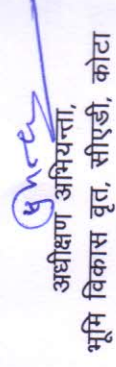 अधीक्षण अभियन्ता,
भूमि विकास वृत, सीएडी, कोटा